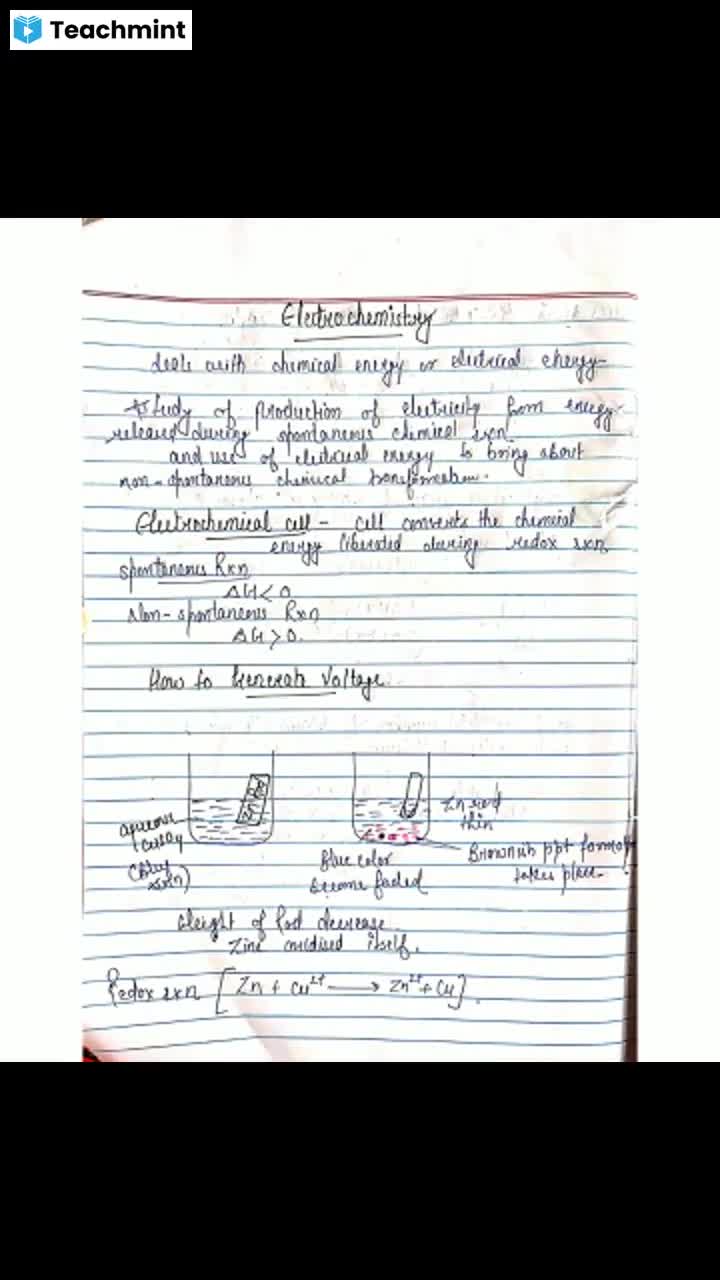 Teachmint
Electrochemistry
deals with chemical energy or electrical energy
Study of production of electricity from energy
released during spontaneous chemical rxn
and use of electrical energy to bring about
non-spontaneous chemical transformation.
Electrochemical cell - cell converts the chemical
energy liberated during redox rxn
spontaneous Rxn
ΔG < 0
Non-spontaneous Rxn
ΔG > 0.
How to Generate Voltage
Zn rod
thin
aqueous
CuSO4
Brownish ppt formed
takes place
(Blue
Blue color
become faded
Weight of Rod decrease
Zinc oxidised itself.
Redox rxn [Zn + Cu2+ ⟶ Zn2+ + Cu].